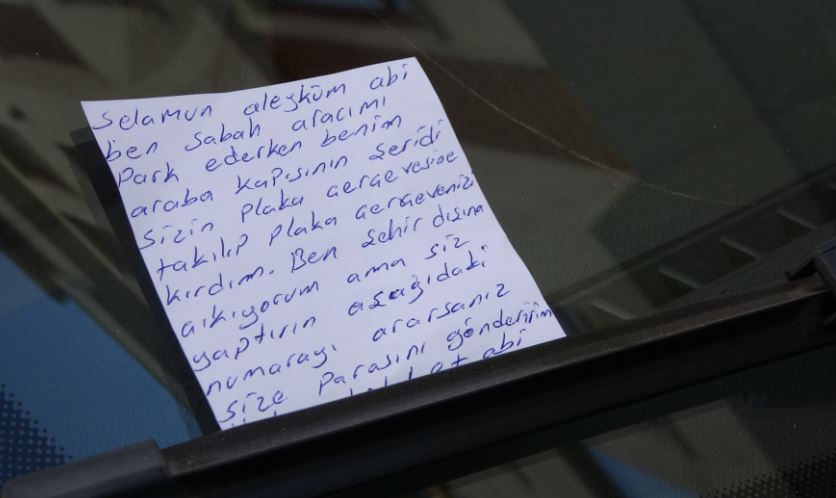 Selamun aleyküm abi
ben sabah aracımı
Park ederken benim
araba kapısının şeridi
sizin plaka çerçevesine
takılıp plaka çerçevenizi
kırdım. Ben şehir dışına
çıkıyorum ama siz
yaptırın aşağıdaki
numarayı ararsanız
size Parasını gönderirim
abi